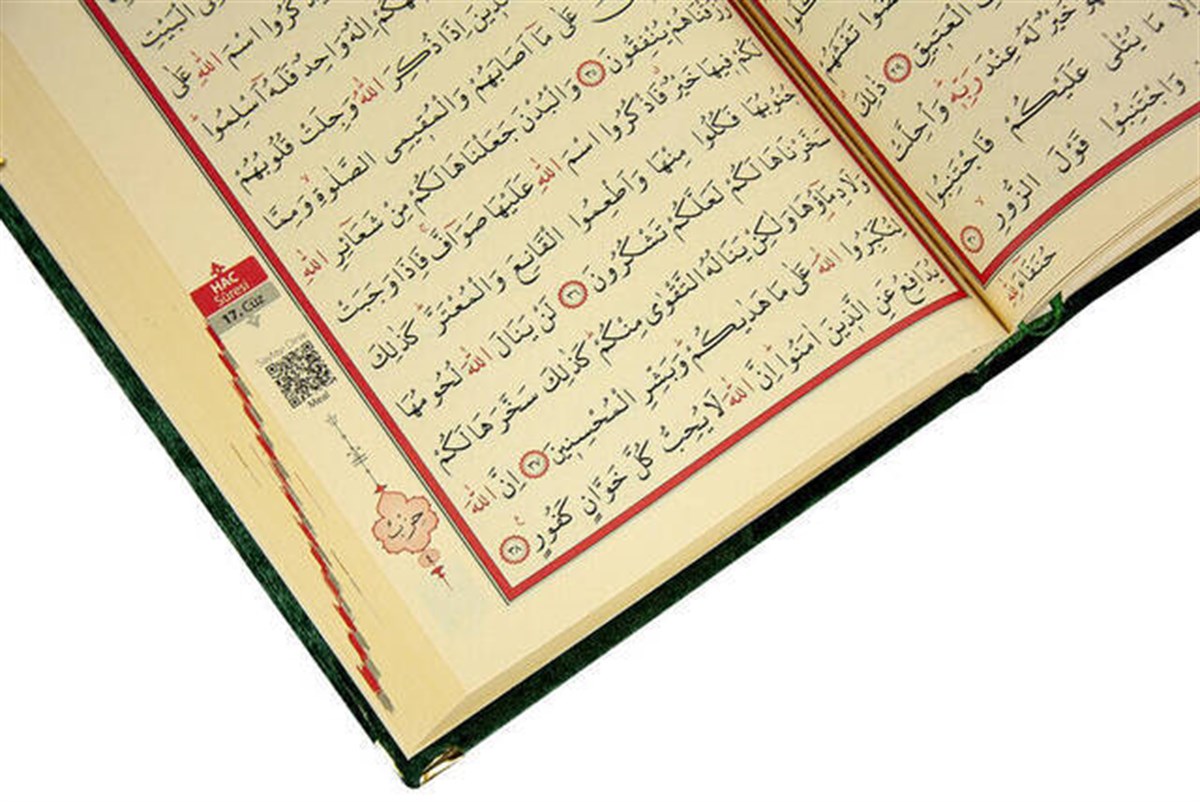 تَفَثَهُمْ
الْعَتِيقِ ﴿٢٩﴾ ذٰلِكَ
خَيْرٌ لَهُ عِنْدَ رَبِّهٖ وَاُحِلَّتْ
اِلَّا مَا يُتْلٰى عَلَيْكُمْ فَاجْتَنِبُوا
وَاجْتَنِبُوا قَوْلَ الزُّورِ ﴿٣٠﴾
حُنَفَٓاءَ لِلّٰهِ
الْبَيْتِ
اسْمَ اللّٰهِ عَلٰى
اِلٰهٌ وَاحِدٌ فَلَهُٓ اَسْلِمُوا
اِذَا ذُكِرَ اللّٰهُ وَجِلَتْ قُلُوبُهُمْ
عَلٰى مَٓا اَصَابَهُمْ وَالْمُقِيمِي الصَّلٰوةِ وَمِمَّا
رَزَقْنَاهُمْ يُنْفِقُونَ ﴿٣٥﴾ وَالْبُدْنَ جَعَلْنَاهَا لَكُمْ مِنْ شَعَٓائِرِ اللّٰهِ
لَكُمْ فِيهَا خَيْرٌ فَاذْكُرُوا اسْمَ اللّٰهِ عَلَيْهَا صَوَٓافَّ فَاِذَا وَجَبَتْ
جُنُوبُهَا فَكُلُوا مِنْهَا وَاَطْعِمُوا الْقَانِعَ وَالْمُعْتَرَّ كَذٰلِكَ
سَخَّرْنَاهَا لَكُمْ لَعَلَّكُمْ تَشْكُرُونَ ﴿٣٦﴾ لَنْ يَنَالَ اللّٰهَ لُحُومُهَا
وَلَا دِمَٓاؤُ۬هَا وَلٰكِنْ يَنَالُهُ التَّقْوٰى مِنْكُمْ كَذٰلِكَ سَخَّرَهَا لَكُمْ
لِتُكَبِّرُوا اللّٰهَ عَلٰى مَا هَدٰيكُمْ وَبَشِّرِ الْمُحْسِنِينَ ﴿٣٧﴾ اِنَّ اللّٰهَ
يُدَافِعُ عَنِ الَّذِينَ اٰمَنُوا اِنَّ اللّٰهَ لَا يُحِبُّ كُلَّ خَوَّانٍ كَفُورٍ ﴿٣٨﴾
HAC
Sûresi
17. Cüz
Meal
حزب
٤